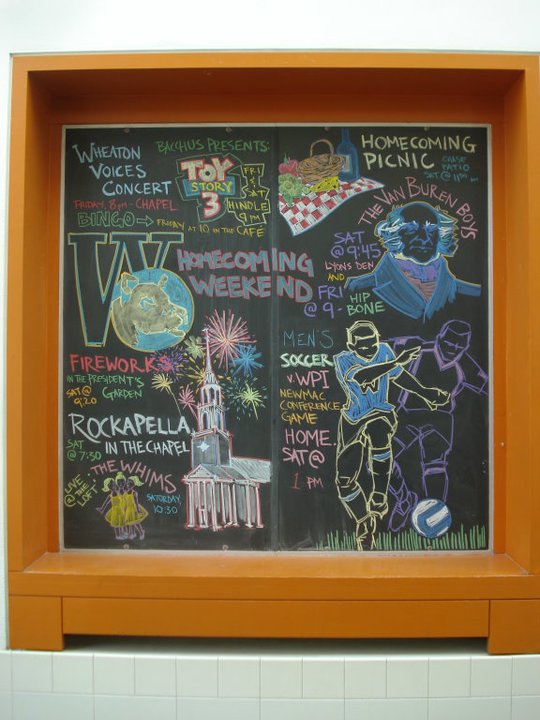 WHEATON
VOICES
CONCERT
FRIDAY, 8pm - CHAPEL
BINGO → FRIDAY AT 10 IN THE CAFÉ
BACCHUS PRESENTS:
TOY
STORY
3
FRI
&
SAT
HINDLE
9 PM
HOMECOMING
PICNIC
SAT @ 11
THE VAN BUREN BOYS
SAT
@ 9:45
LYONS DEN
AND
FRI
@ 9 - HIP
BONE
W
HOMECOMING
WEEKEND
FIREWORKS
IN THE PRESIDENT'S
GARDEN
SAT @
9:20
ROCKAPELLA
SAT
@ 7:30
IN THE CHAPEL
THE WHIMS
LIVE
@ THE
LOFT
SATURDAY,
10:30
MEN'S
SOCCER
v. WPI
NEWMAC
CONFERENCE
GAME
HOME.
SAT @
1 PM